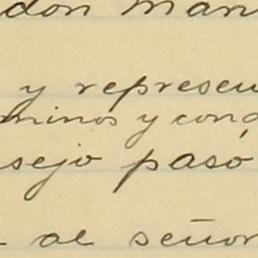 don Man
y represen
minos y cond
sejo pasó
al señor